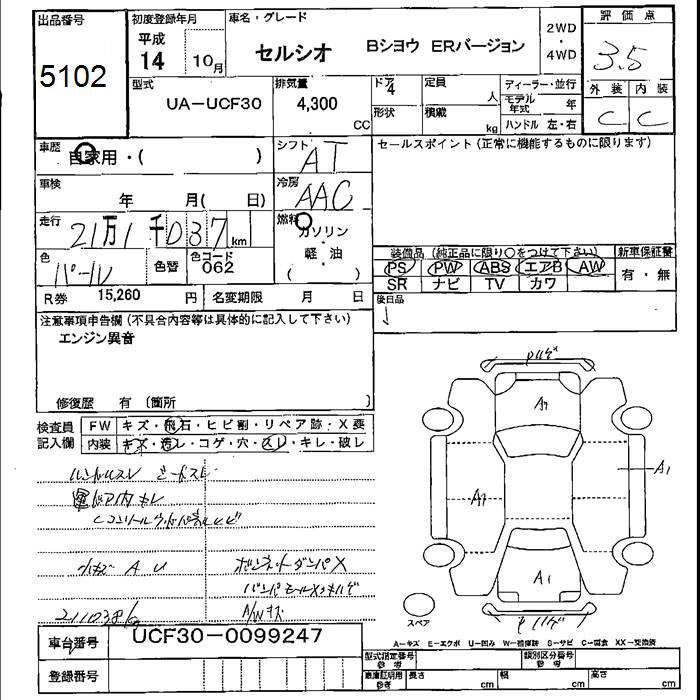 出品番号
5102
初度登録年月
平成
14
10月
車名・グレード
セルシオ
Bシヨウ ERバージョン
2WD
・
4WD
評価点
3.5
外装 内装
C C
型式
UA-UCF30
排気量
4,300
CC
ドア
4
形状
定員
人
積載
kg
ディーラー・並行
モデル年式 年
ハンドル 左・右
車歴
自家用・( )
シフト
AT
セールスポイント(正常に機能するものに限ります)
車検
年 月( 日)
冷房
AAC
走行
21万1千037km
燃料
ガソリン
・
軽油
( )
色
パール
色替
色コード
062
装備品(純正品に限り○をつけて下さい)
PS PW ABS エアB AW
SR ナビ TV カワ
新車保証書
有・無
R券 15,260 円
名変期限 月 日
後日品
注意事項申告欄(不具合内容等は具体的に記入して下さい)
エンジン異音
修復歴 有 (箇所 )
検査員
記入欄
FW キズ・飛石・ヒビ割・リペア跡・X要
内装 キズ・汚レ・コゲ・穴・スレ・キレ・破レ
ハンドルスレ シートスレ
小キズ AU
ボンネットダンパX
A/Wキズ
A1
A1
スペア
A-キズ E-エクボ U-凹み W-補修跡 S-サビ C-腐食 XX-交換済
車台番号
UCF30-0099247
登録番号
型式指定番号
参考
類別区分番号
参考
車庫証明用
参考
長さ cm
幅 cm
高さ cm